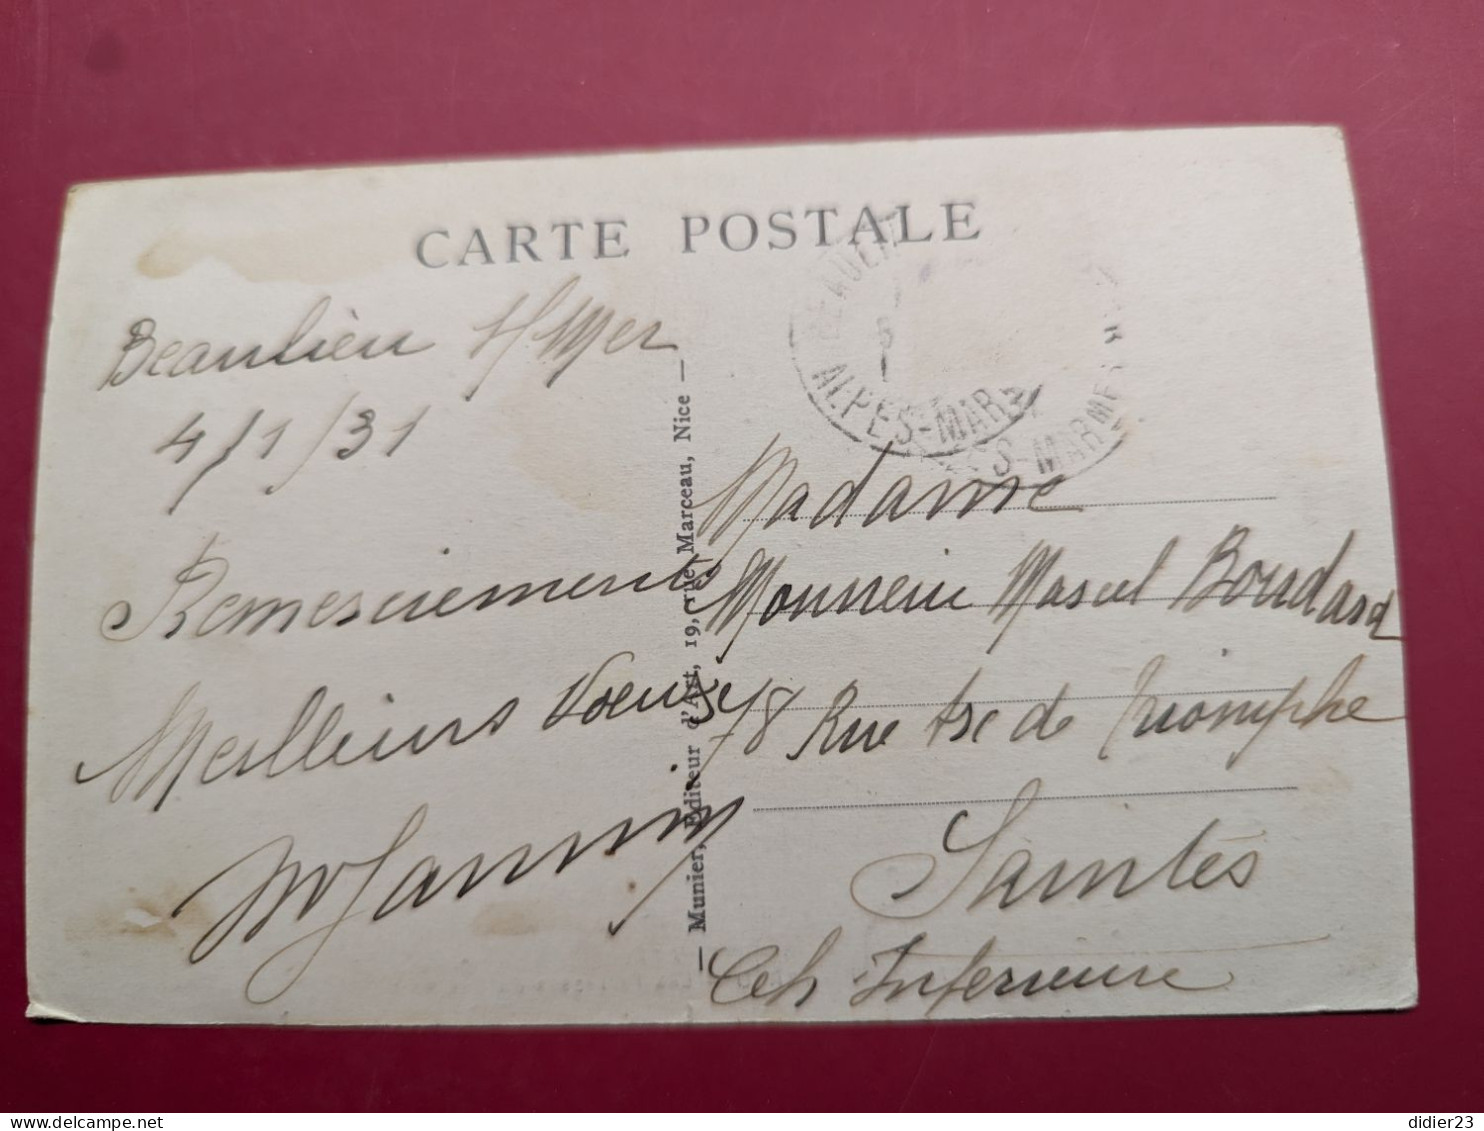 CARTE POSTALE
Beaulieu s/Mer
4/1/31
Remerciements
Meilleurs Voeux
ALPES-MAR
S-MARMES
— Munier, Editeur d'Art, 19, rue Marceau, Nice —
Madame
Monsieur Marcel Boudard
78 Rue Arc de Triomphe
Saintes
Ch Inferieure
didier23